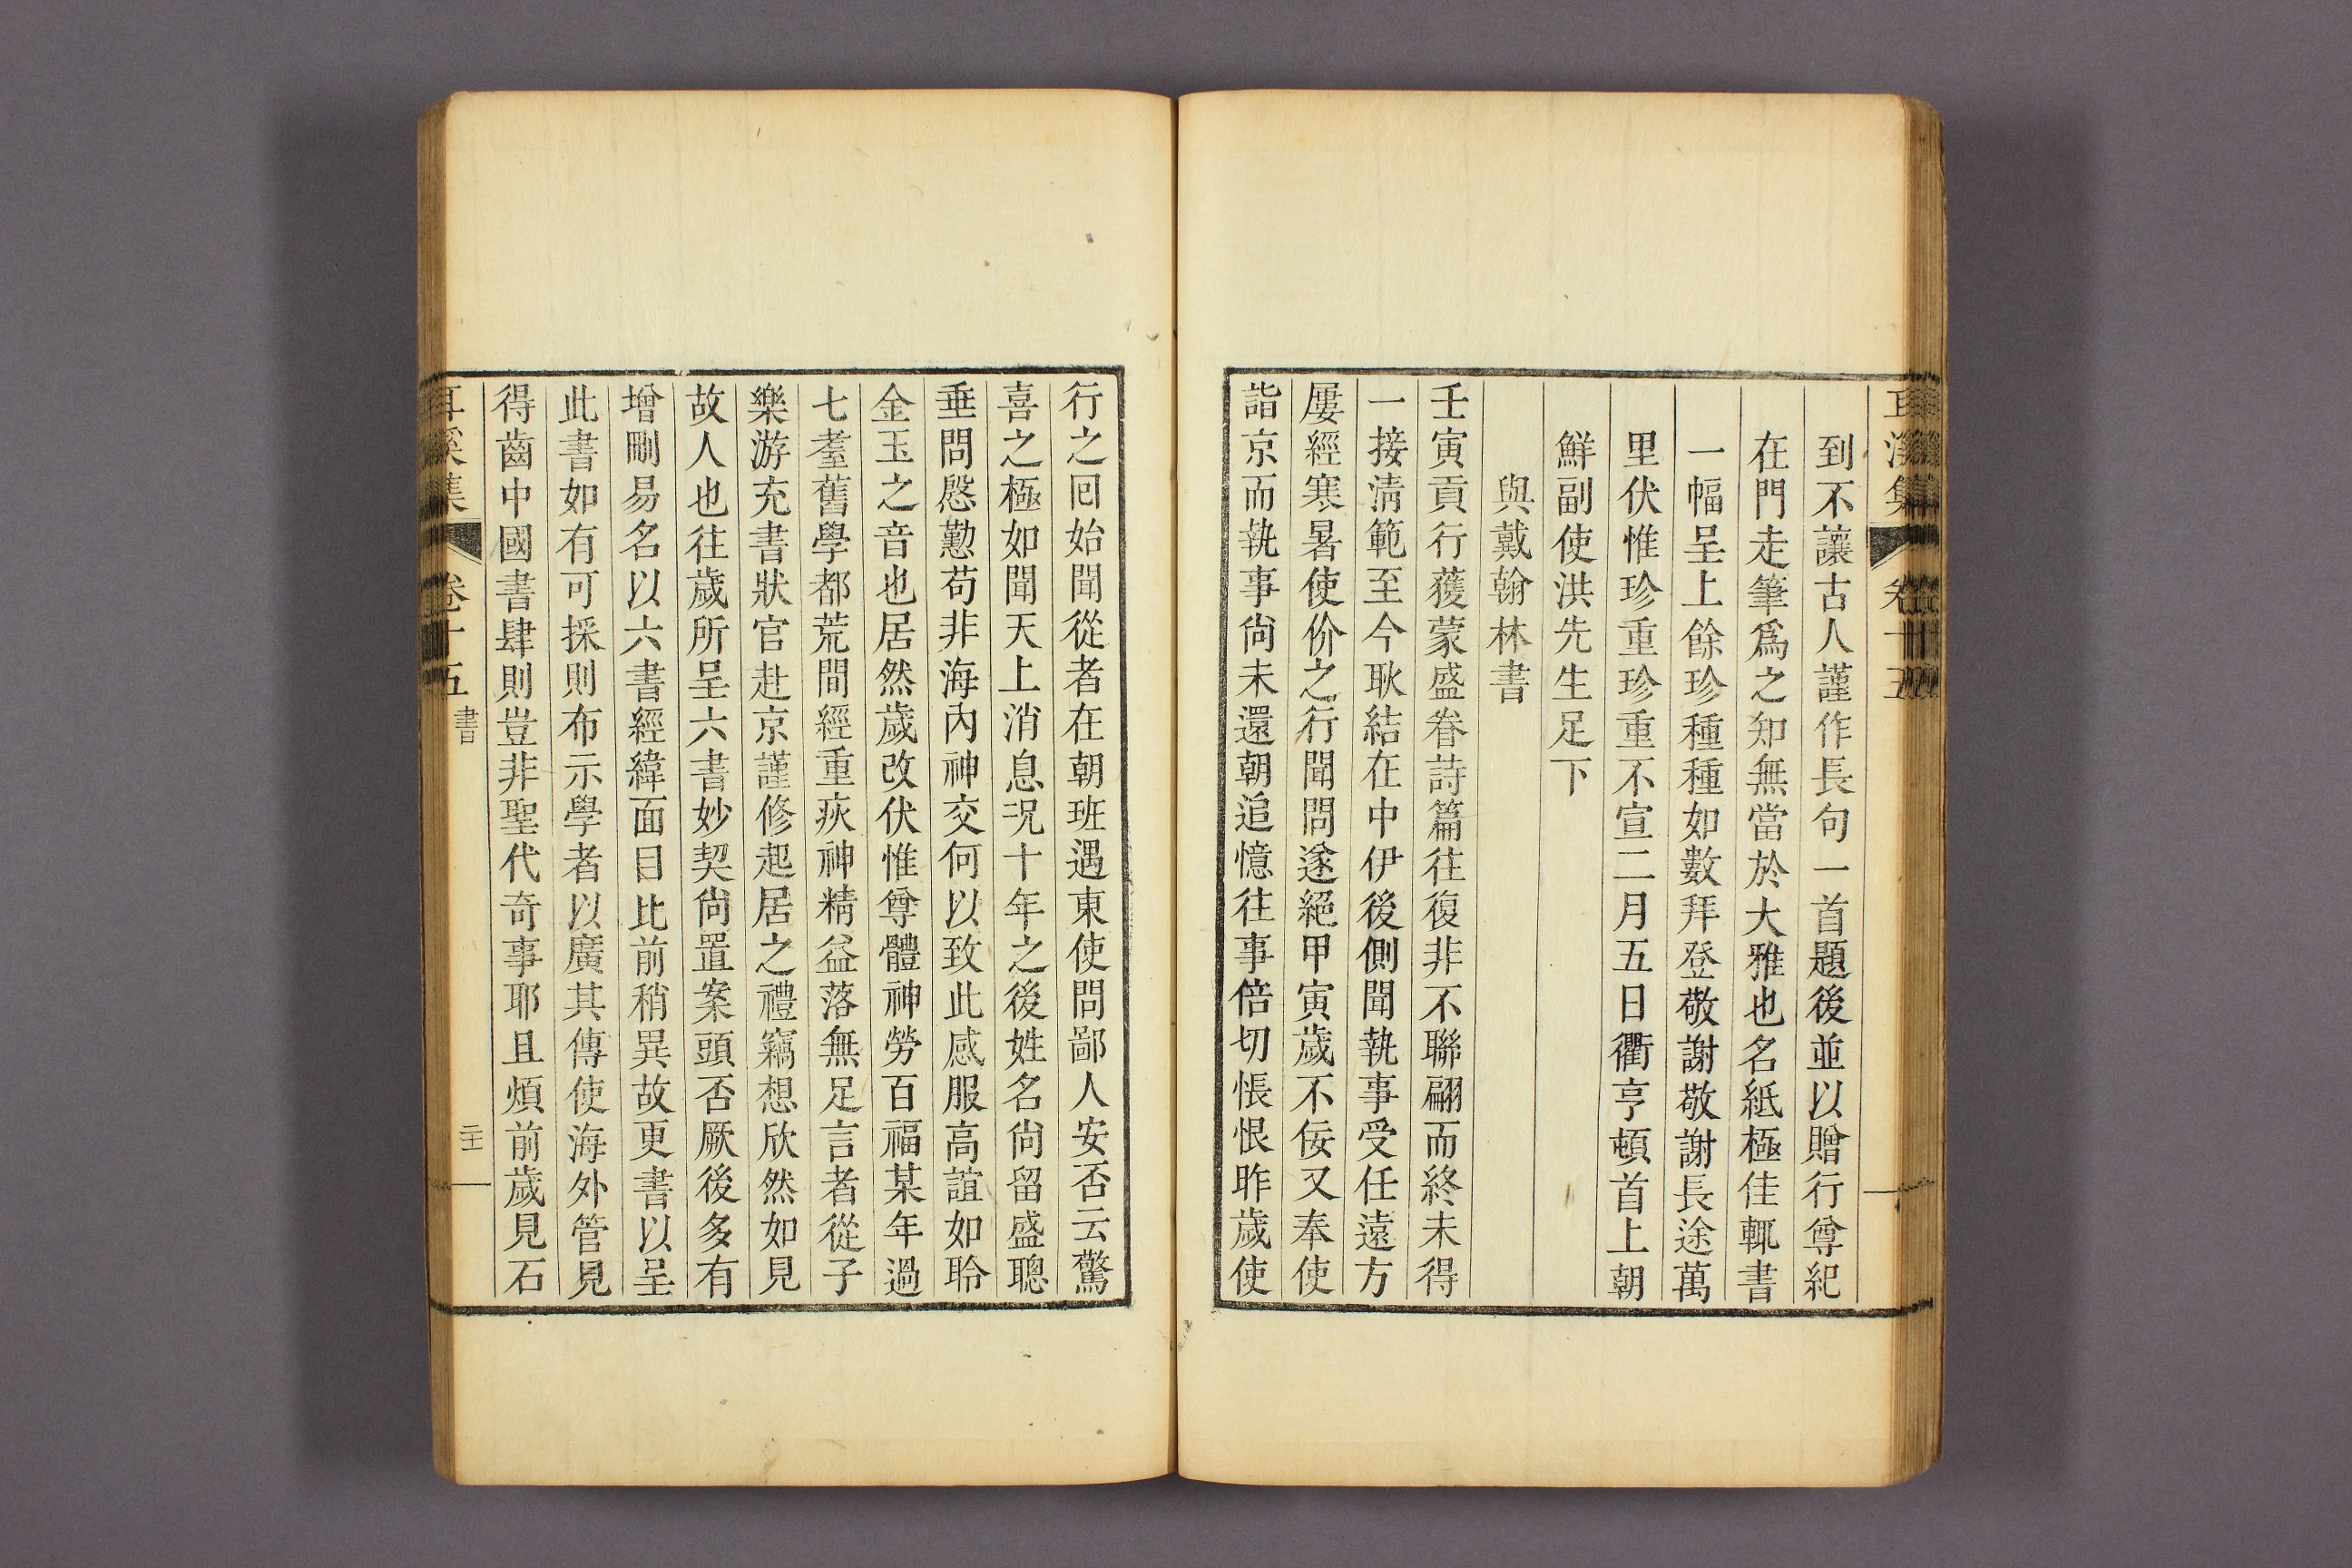 耳溪集 卷十五
到不讓古人謹作長句一首題後並以贈行尊紀
在門走筆爲之知無當於大雅也名紙極佳輒書
一幅呈上餘珍種種如數拜登敬謝敬謝長途萬
里伏惟珍重珍重不宣二月五日衢亨頓首上朝
鮮副使洪先生足下
與戴翰林書
壬寅貢行獲蒙盛眷詩篇往復非不聯翩而終未得
一接淸範至今耿結在中伊後側聞執事受任遠方
屢經寒暑使价之行聞問遂絕甲寅歲不佞又奉使
詣京而執事尙未還朝追憶往事倍切悵恨昨歲使
行之回始聞從者在朝班遇東使問鄙人安否云驚
喜之極如聞天上消息况十年之後姓名尙留盛聰
垂問慇懃苟非海內神交何以致此感服高誼如聆
金玉之音也居然歲改伏惟尊體神勞百福某年過
七耋舊學都荒間經重疢神精益落無足言者從子
樂游充書狀官赴京謹修起居之禮竊想欣然如見
故人也往歲所呈六書妙契尙置案頭否厥後多有
增刪易名以六書經緯面目比前稍異故更書以呈
此書如有可採則布示學者以廣其傳使海外管見
得齒中國書肆則豈非聖代奇事耶且煩前歲見石
耳溪集 卷十五 書 二十一